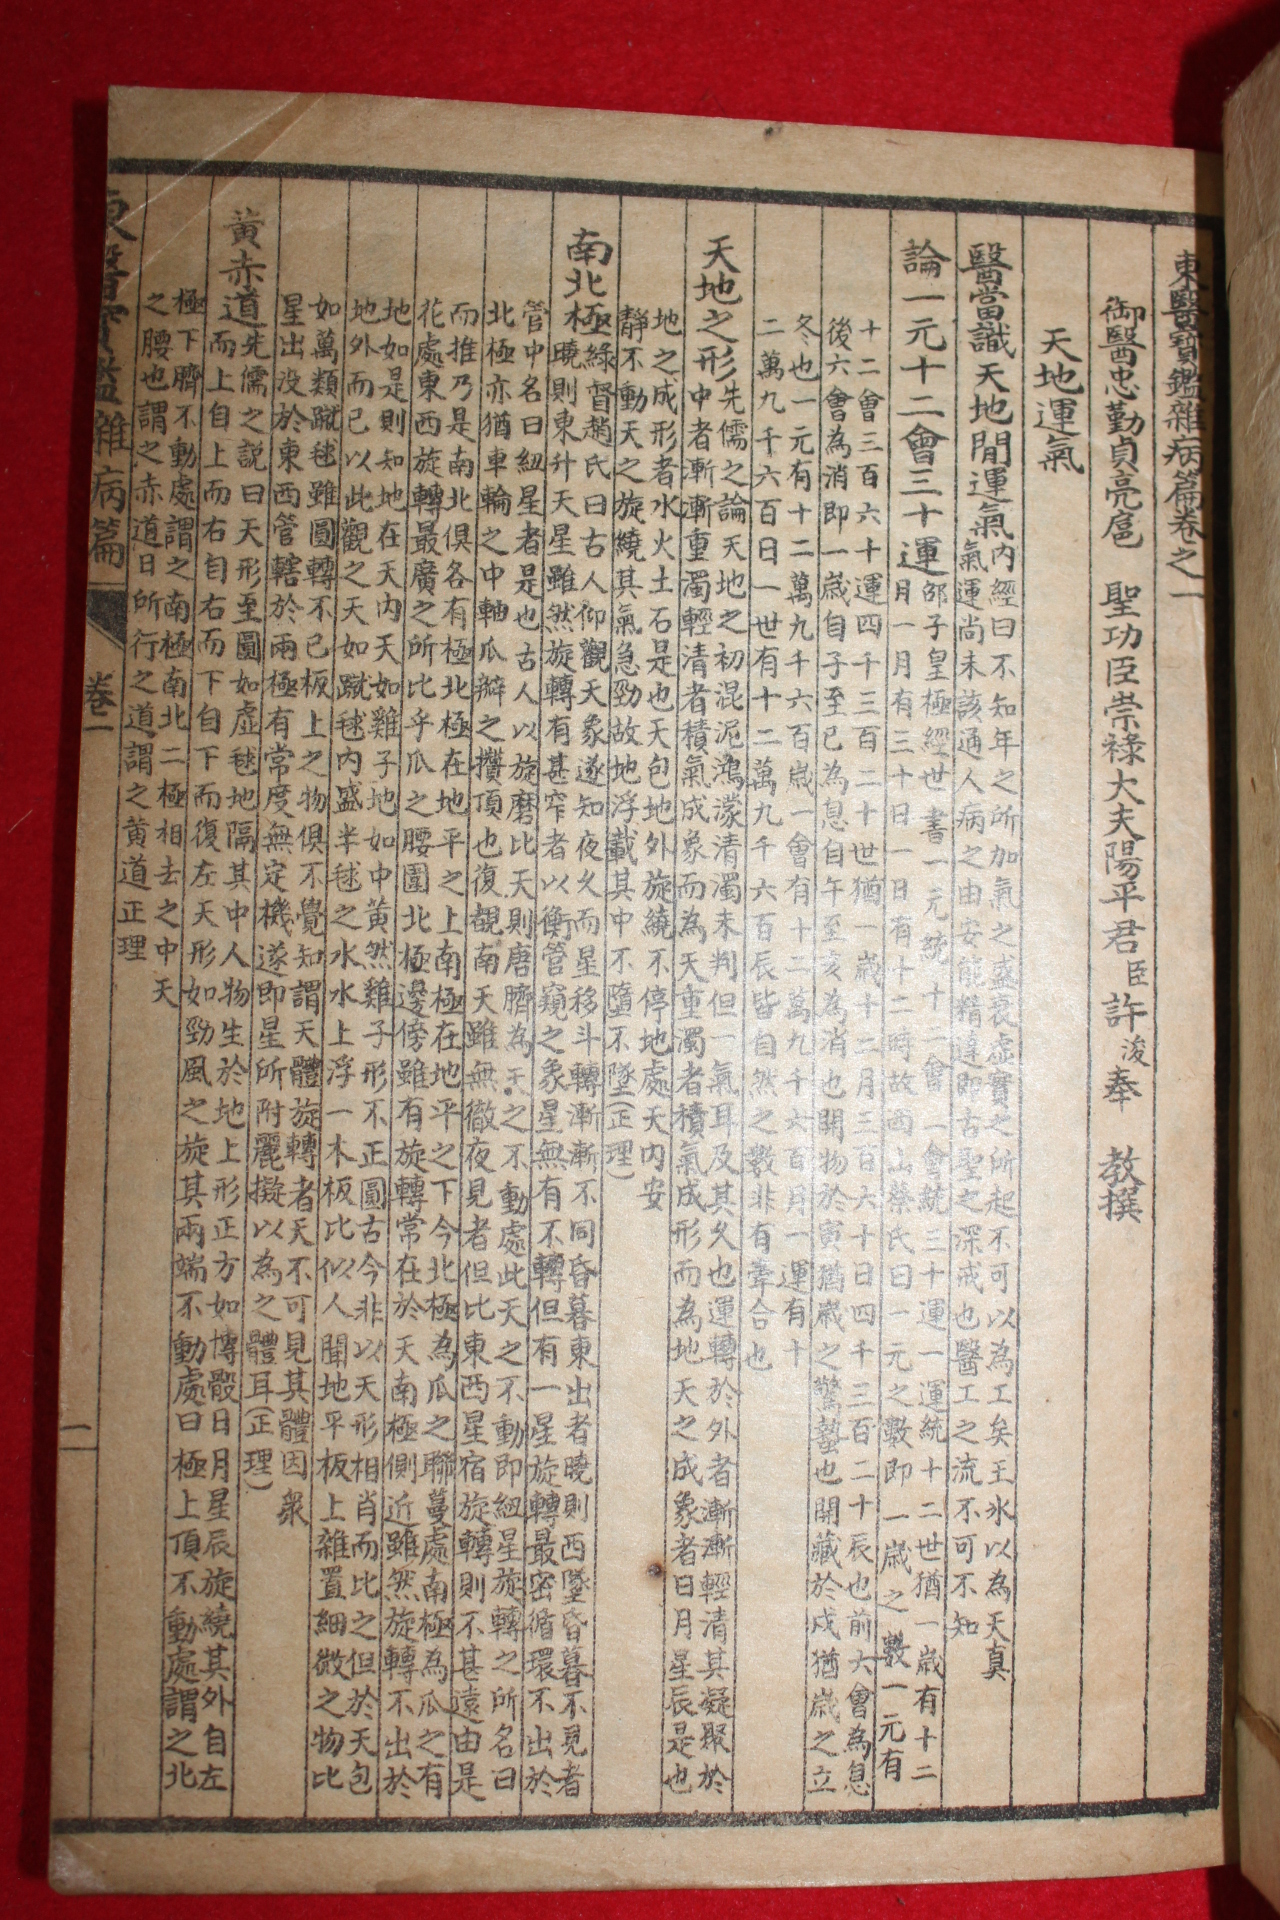 東醫寶鑑雜病篇卷之一
御醫忠勤貞亮扈 聖功臣崇祿大夫陽平君臣許浚奉 教撰
天地運氣
醫當識天地間運氣
內經曰不知年之所加氣之盛衰虛實之所起不可以為工矣王氷以為天真
氣運尚未該通人病之由安能精達即古聖之深戒也醫工之流不可不知
論一元十二會三十運
邵子皇極經世書一元統十二會一會統三十運一運統十二世猶一歲有十二
月一月有三十日一日有十二時故西山蔡氏曰一元之數即一歲之數一元有
十二會三百六十運四千三百二十世猶一歲十二月三百六十日四千三百二十辰也前六會為息
後六會為消即一歲自子至巳為息自午至亥為消也開物於寅猶歲之驚蟄也閉藏於戌猶歲之立
冬也一元有十二萬九千六百歲一會有十二萬九千六百月一運有十
二萬九千六百日一世有十二萬九千六百辰皆自然之數非有牽合也
天地之形
先儒之論天地之初混沌鴻濛清濁未判但一氣耳及其久也運轉於外者漸漸輕清其凝聚於
中者漸漸重濁輕清者積氣成象而為天重濁者積氣成形而為地天之成象者日月星辰是也
地之成形者水火土石是也天包地外旋繞不停地處天內安
靜不動天之旋繞其氣急勁故地浮載其中不墮不墜(正理)
南北極
緣督趙氏曰古人仰觀天象遂知夜久而星移斗轉漸漸不同昏暮東出者曉則西墜昏暮不見者
曉則東升天星雖然旋轉有甚窄者以衡管窺之象星無有不轉但有一星旋轉最密循環不出於
管中名曰紐星者是也古人以旋磨比天則唐臍為天之不動處此天之不動即紐星旋轉之所名曰
北極亦猶車輪之中軸瓜瓣之攢頂也復覩南天雖無徹夜見者但比東西星宿旋轉則不甚遠由是
而推乃是南北俱各有極北極在地平之上南極在地平之下今北極為瓜之聯蔓處南極為瓜之有
花處東西旋轉最廣之所比乎瓜之腰圍北極邊傍雖有旋轉常在於天南極側近雖然旋轉不出於
地如是則知地在天內天如雞子地如中黃然雞子形不正圓古今非以天形相肖而比之但於天包
地外而已以此觀之天如蹴毬內盛半毬之水水上浮一木板比似人間地平板上雜置細微之物比
如萬類蹴毬雖圓轉不已板上之物俱不覺知謂天體旋轉者天不可見其體因衆
星出沒於東西管轄於兩極有常度無定機遂即星所附麗擬以為之體耳(正理)
黃赤道
先儒之說曰天形至圓如虛毬地隔其中人物生於地上形正方如博骰日月星辰旋繞其外自左
而上自上而右自右而下自下而復左天形如勁風之旋其兩端不動處曰極上頂不動處謂之北
極下臍不動處謂之南極南北二極相去之中天
之腰也謂之赤道日所行之道謂之黃道正理
東醫寶鑑雜病篇 卷一 一